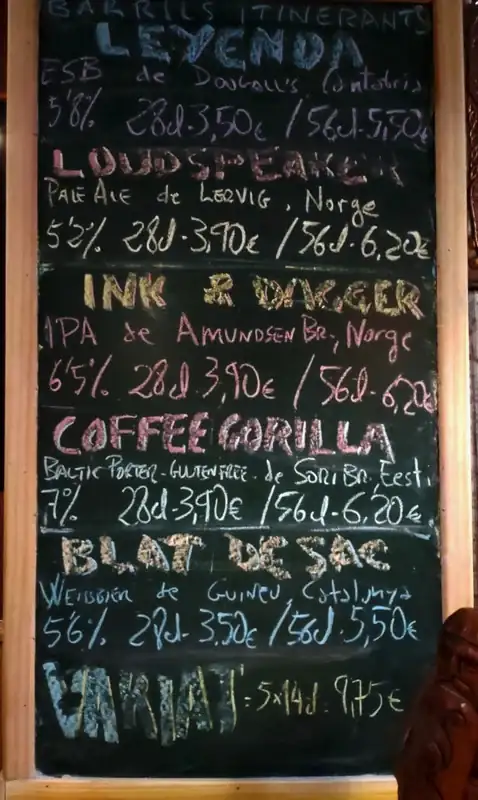 BARRILS ITINERANTS
LEYENDA
ESB de DOUGALL'S, Cantabria
5'8% 28cl-3,50€ / 56cl-5,50€
LOUDSPEAKER
PALE ALE de LERVIG, Norge
5'2% 28cl-3,90€ / 56cl-6,20€
INK & DAGGER
IPA de AMUNDSEN BR., Norge
6'5% 28cl-3,90€ / 56cl-6,20€
COFFEE GORILLA
BALTIC PORTER-GLUTEN FREE-de SORI BR, Eesti
7% 28cl-3,90€ / 56cl-6,20€
BLAT DE SAC
WEISSBIER de GUINEU, Catalunya
5'6% 28cl-3,50€ / 56cl-5,50€
VARIAT: 5x14cl-9,75€